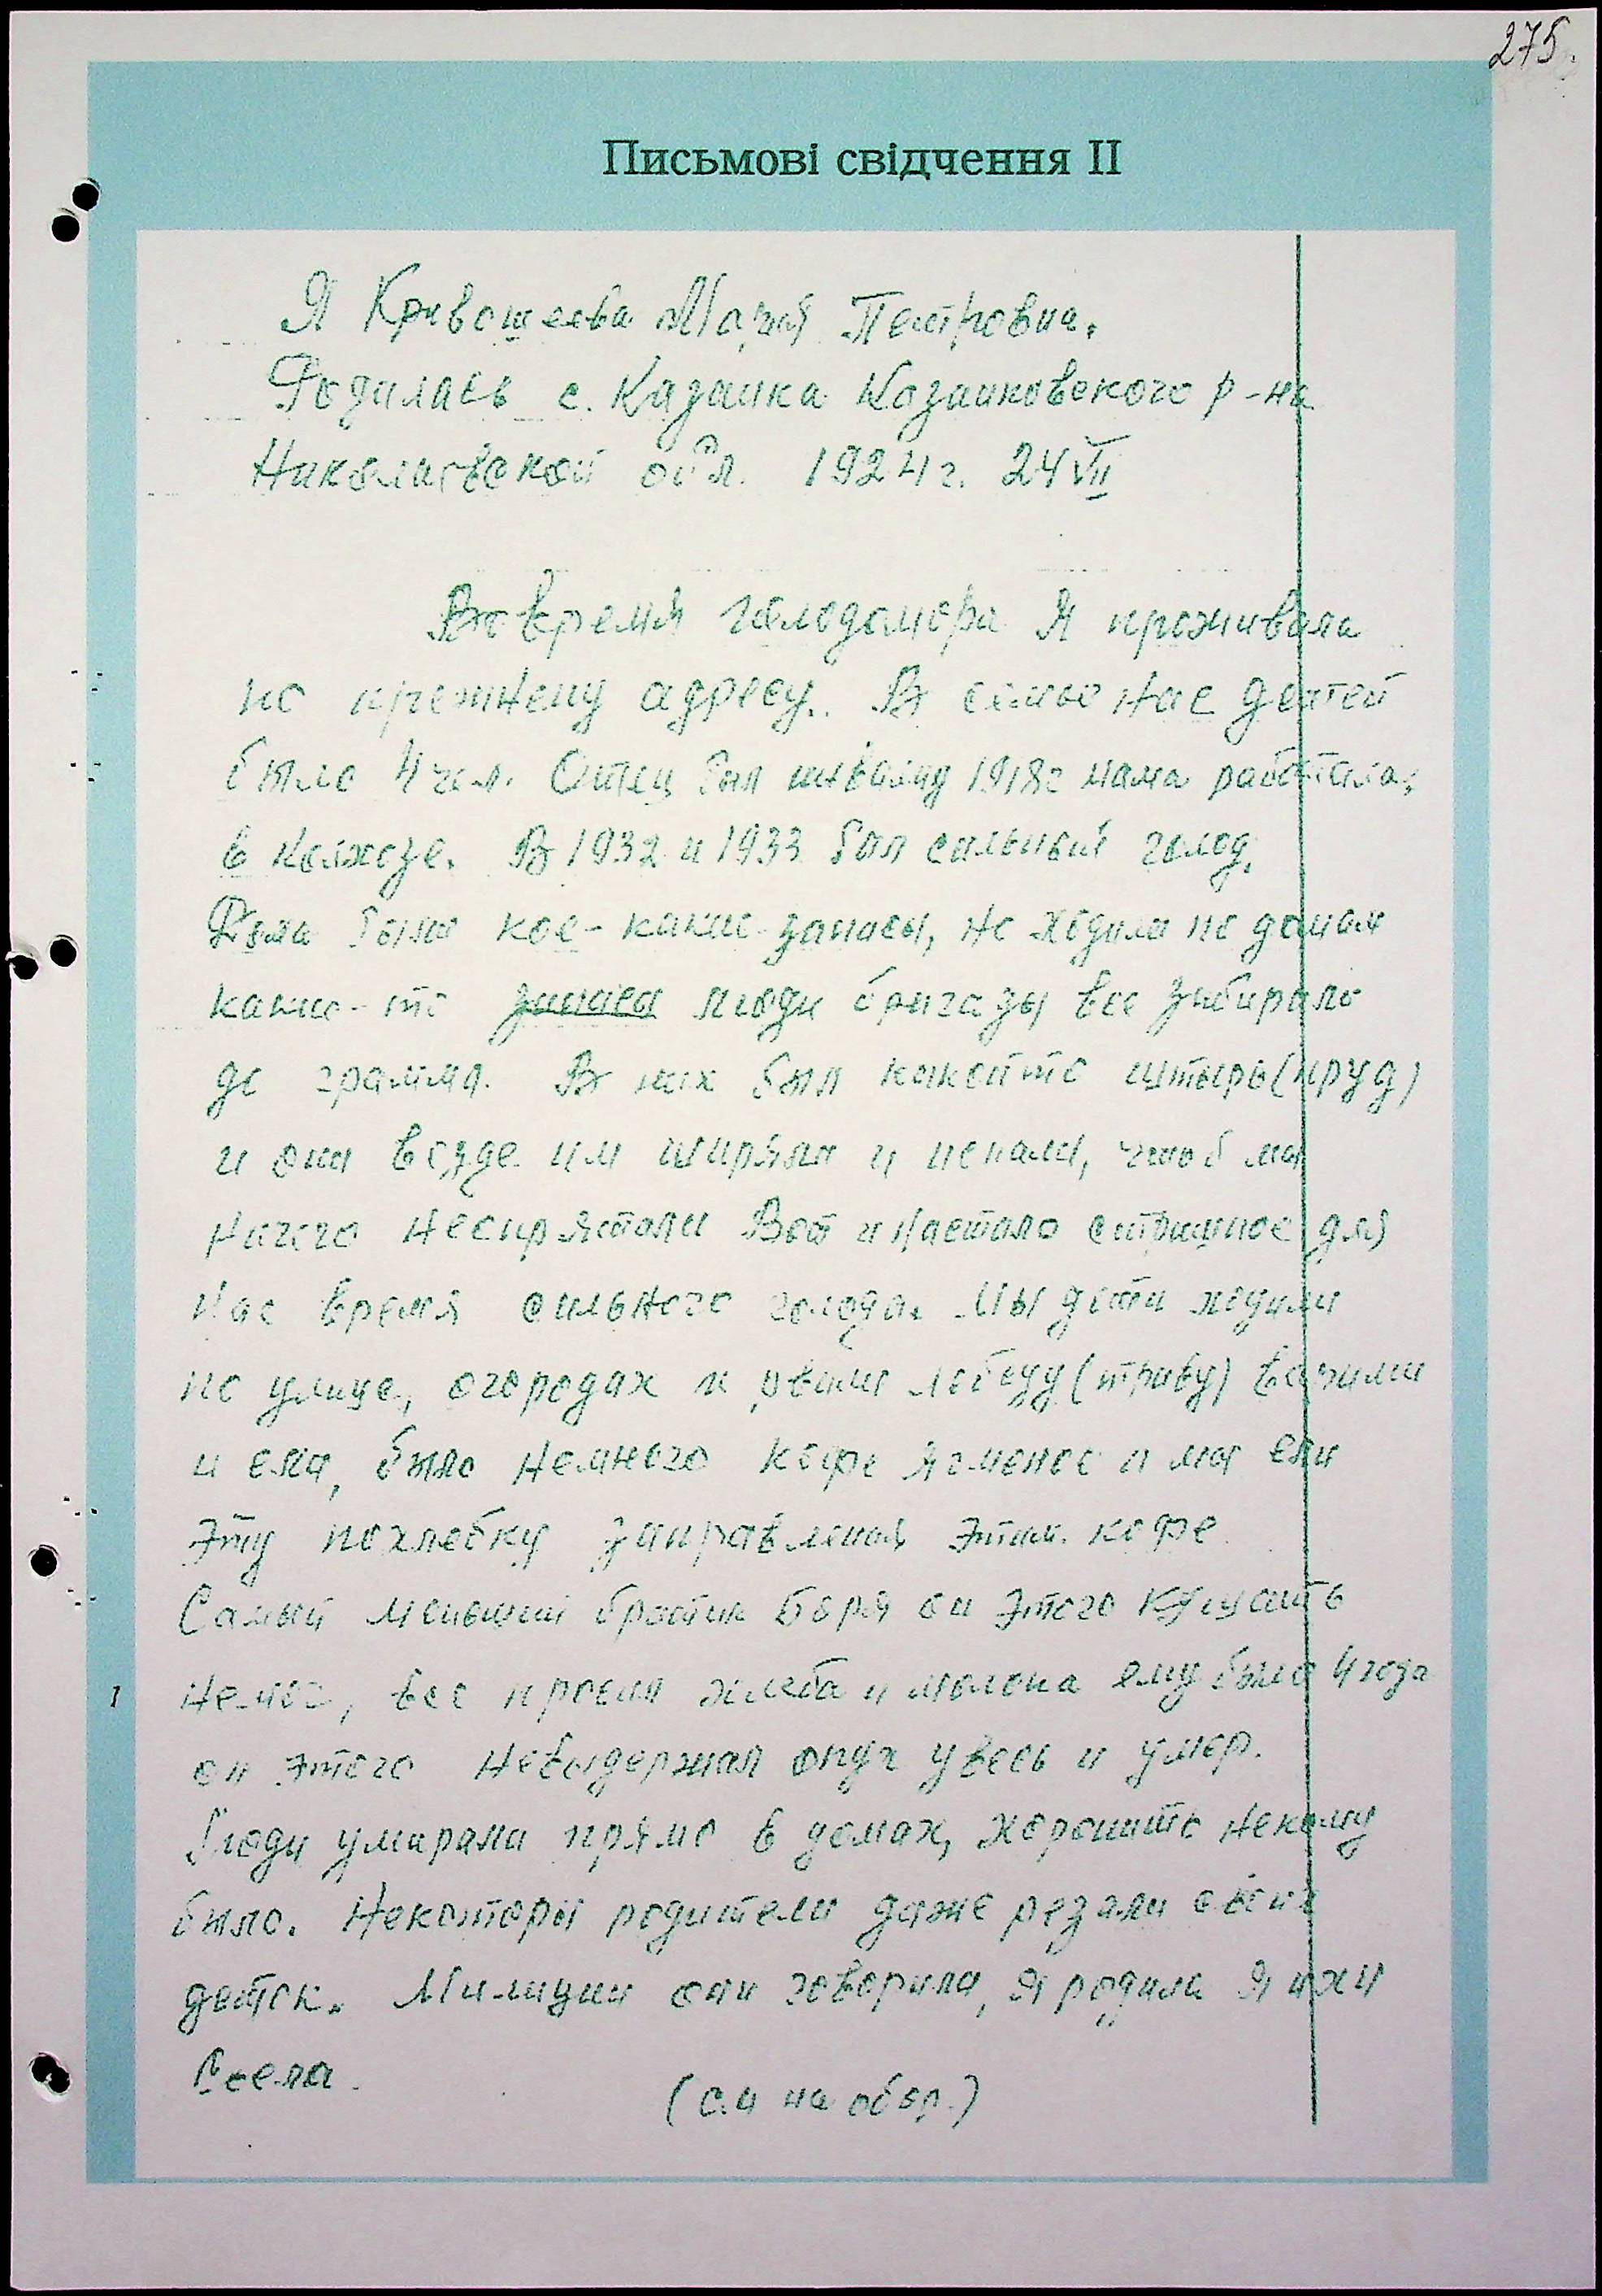 275.
Письмові свідчення II
Я Кривошеева Мария Петровна.
Родилась с. Казанка Казанковского р-на
Николаевской обл. 1924 г. 24 VII
Во время голодомора Я проживала
по прежнему адресу. В семье нас детей
было 4 чел. Отец был инвалид 1918г мама работала,
в колхозе. В 1932 и 1933 был сильный голод,
были кое-какие запасы, но ходили по домам
какие-то запасы люди бригады все забирали
до грамма. В них был какойто штырь (пруд)
и они везде им ширяли и искали, чтоб мы
ничего неспрятали Вот и настало страшное для
нас время сильного голода. Мы дети ходили
по улице, огородах и рвали лободу (траву) варили
и ели, было немного кофе ячменое и мы ели
эту похлебку заправленая этим кофе.
Самый меньший братик Боря он этого кушать
немог, все просил хлеба и молока ему было 4 года
он этого невыдержал опух увесь и умер.
Люди умирали прямо в домах, хоронить некому
было. Некоторы родители даже резали своих
деток. Милиции они говорили, я родила я их и
съела.
(см на обор.)